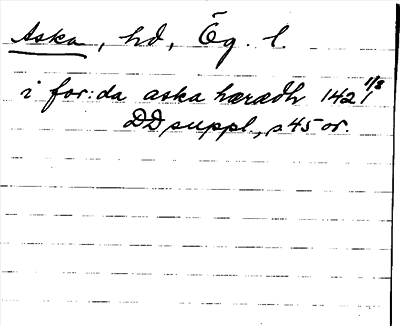 Aska, hd, Ög. l.
i for:da aska hæradh 1421 1/3
DD suppl., s 45 or.